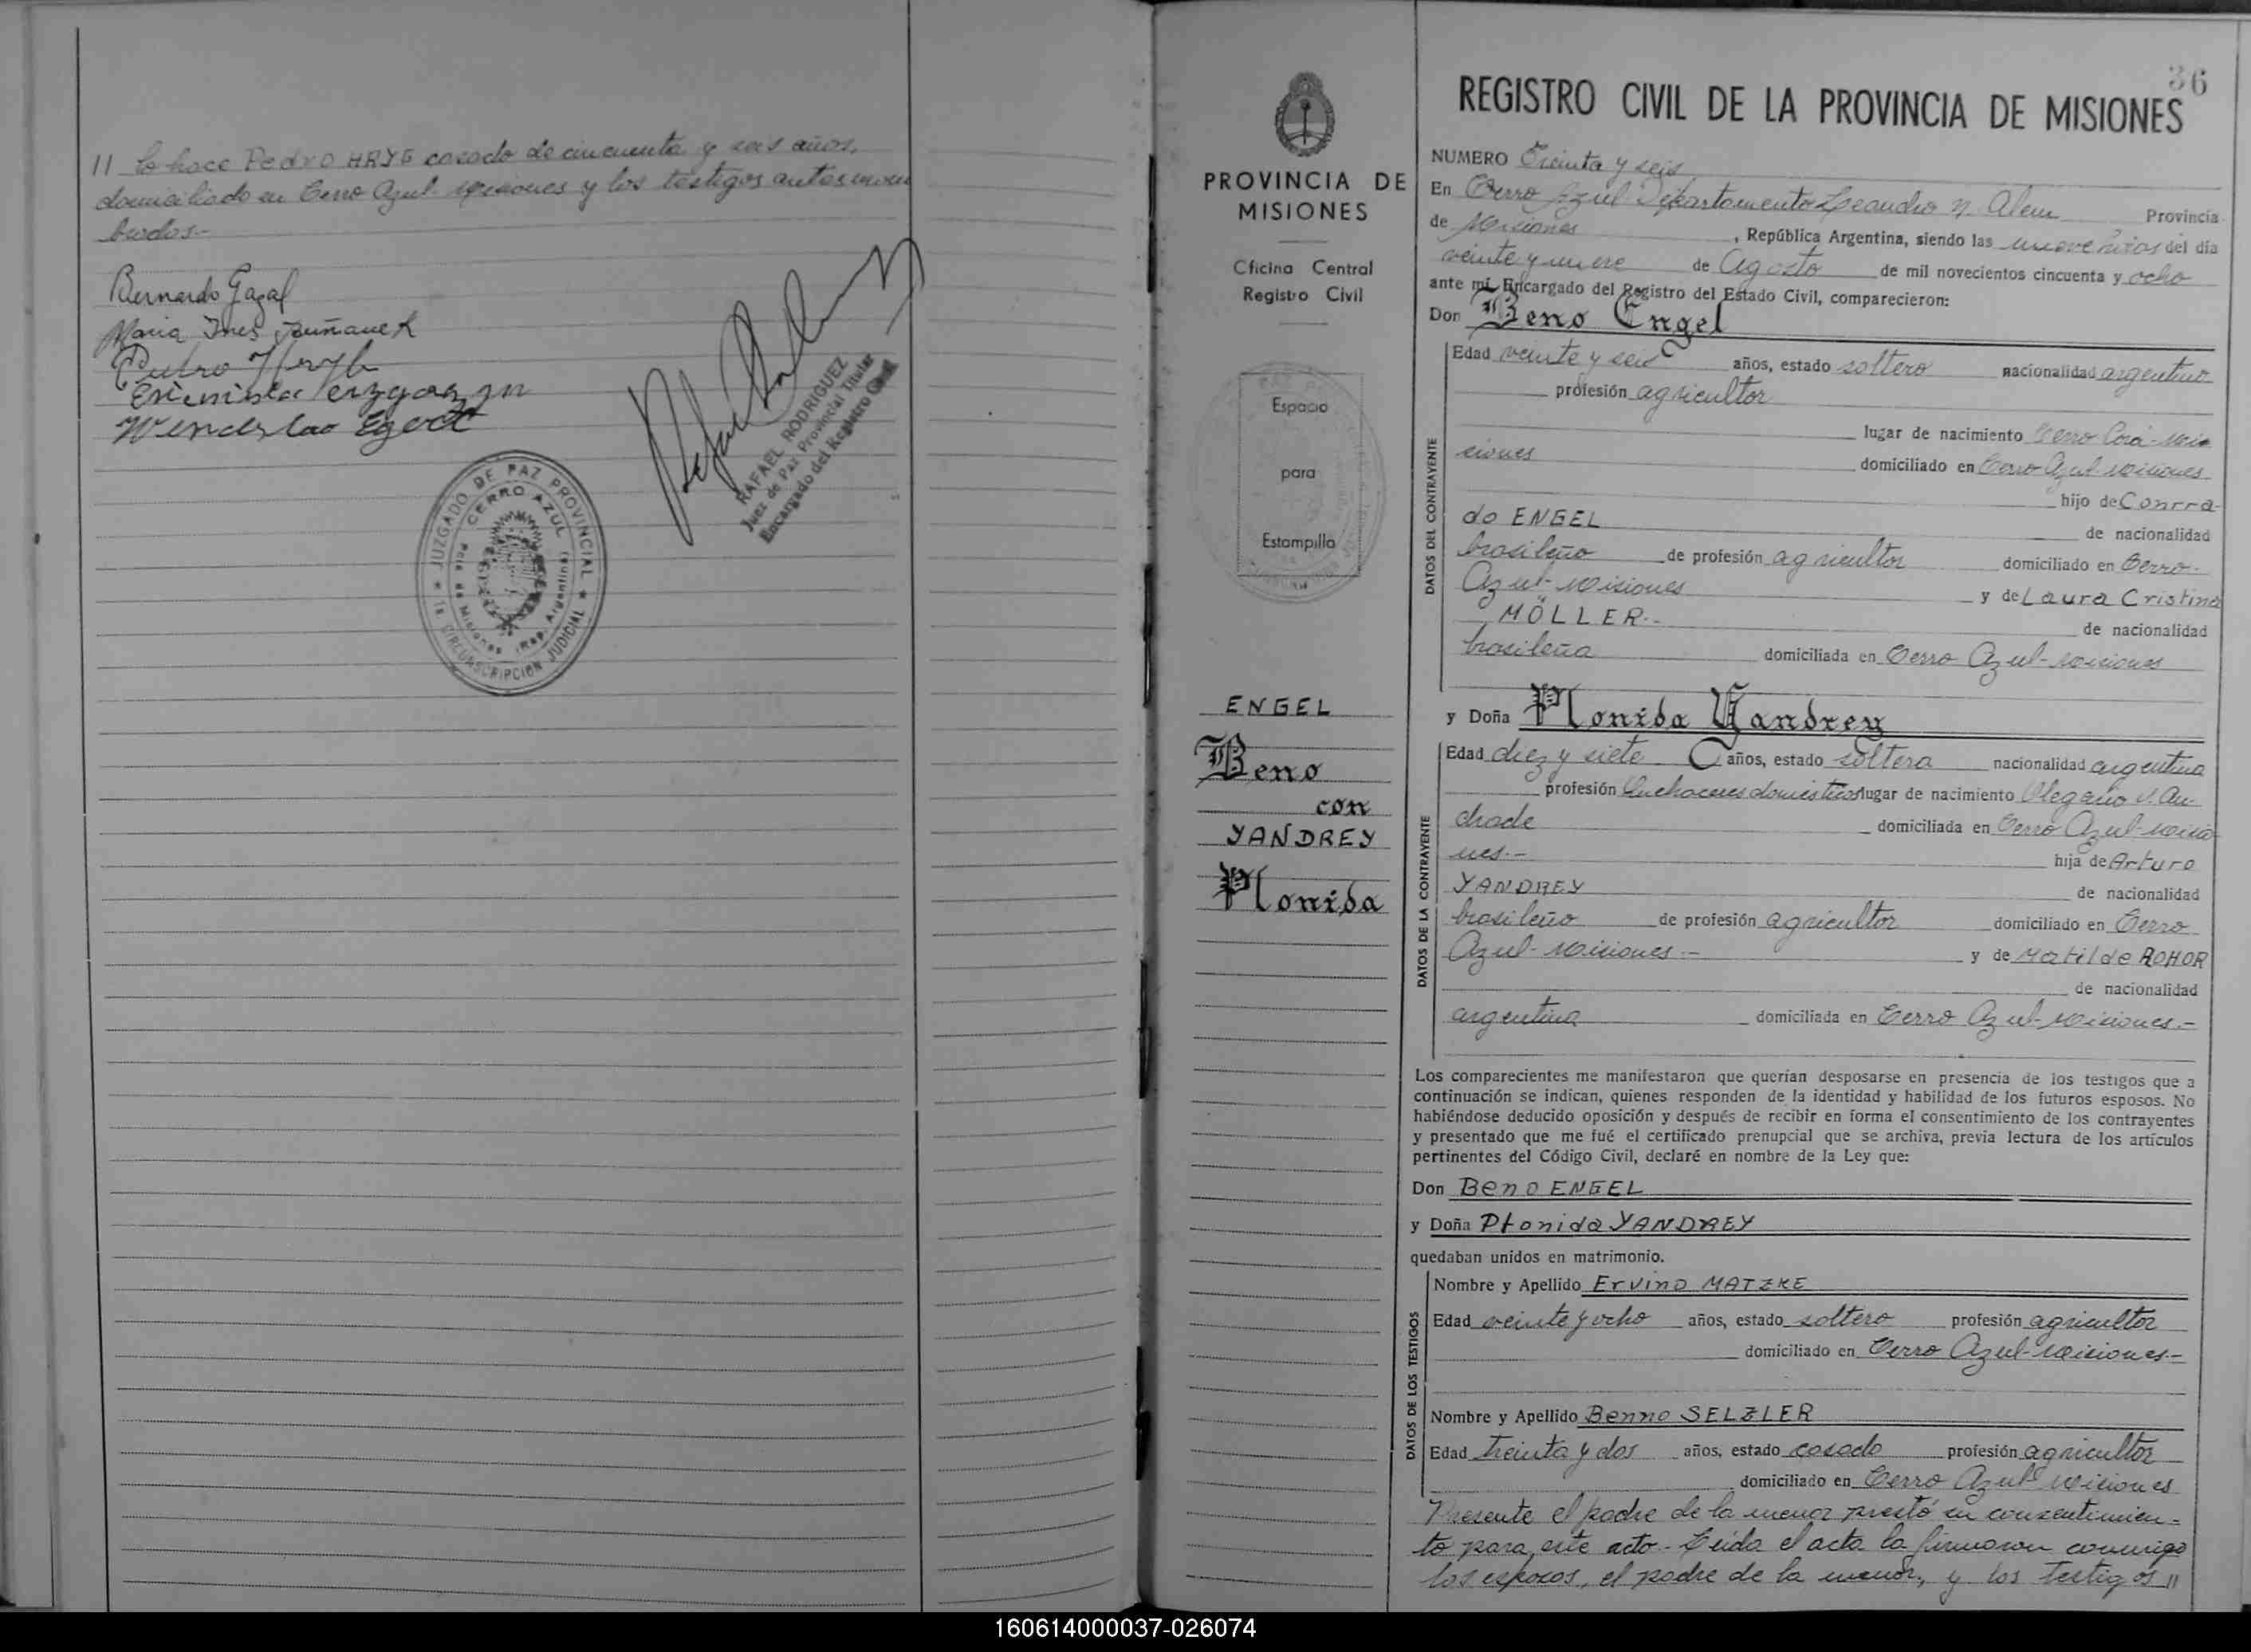 11 lo hace Pedro HRYB casado de cincuenta y seis años,
domiciliado en Cerro Azul Misiones y los testigos antes nom
brados.-
Bernardo Gazal
Maria Ines
Pedro Hryb
Wenceslao
RAFAEL RODRIGUEZ
Juez de Paz Provincial Titular
Encargado del Registro Civil
JUZGADO DE PAZ PROVINCIAL
CERRO AZUL
Pcia de Misiones Rep. Argentina
1a CIRCUNSCRIPCION JUDICIAL
PROVINCIA DE
MISIONES
Oficina Central
Registro Civil
Espacio
para
Estampilla
ENGEL
Beno
con
YANDREY
Plonida
36
REGISTRO CIVIL DE LA PROVINCIA DE MISIONES
NUMERO Treinta y seis
En Cerro Azul Departamento Leandro N. Alem Provincia
de Misiones, República Argentina, siendo las nueve horas del día
veinte y nueve de Agosto de mil novecientos cincuenta y ocho
ante mi, Encargado del Registro del Estado Civil, comparecieron:
Don Beno Engel
DATOS DEL CONTRAYENTE
Edad veinte y seis años, estado soltero nacionalidad argentino
profesión agricultor
lugar de nacimiento Cerro Corá-Mi
siones domiciliado en Cerro Azul Misiones
hijo de Conrra-
do ENGEL de nacionalidad
brasileño de profesión agricultor domiciliado en Cerro-
Azul-Misiones y de Laura Cristina
MÖLLER.- de nacionalidad
brasileña domiciliada en Cerro Azul-Misiones
y Doña Plonida Yandrey
DATOS DE LA CONTRAYENTE
Edad diez y siete años, estado soltera nacionalidad argentina
profesión Quehaceres domésticos lugar de nacimiento Olegario V. An-
drade domiciliada en Cerro Azul-Misio
nes.- hija de Arturo
YANDREY de nacionalidad
brasileño de profesión agricultor domiciliado en Cerro
Azul-Misiones.- y de Matilde ROHOR
de nacionalidad
argentina domiciliada en Cerro Azul-Misiones.-
Los comparecientes me manifestaron que querían desposarse en presencia de los testigos que a
continuación se indican, quienes responden de la identidad y habilidad de los futuros esposos. No
habiéndose deducido oposición y después de recibir en forma el consentimiento de los contrayentes
y presentado que me fué el certificado prenupcial que se archiva, previa lectura de los artículos
pertinentes del Código Civil, declaré en nombre de la Ley que:
Don Beno ENGEL
y Doña Plonida YANDREY
quedaban unidos en matrimonio.
DATOS DE LOS TESTIGOS
Nombre y Apellido Ervino MATZKE
Edad veinte y ocho años, estado soltero profesión agricultor
domiciliado en Cerro Azul-Misiones-
Nombre y Apellido Benno SELZLER
Edad treinta y dos años, estado casado profesión agricultor
domiciliado en Cerro Azul Misiones
Presente el padre de la menor prestó su consentimien-
to para este acto- Leída el acta la firmaron conmigo
los esposos, el padre de la menor, y los testigos 11
160614000037-026074